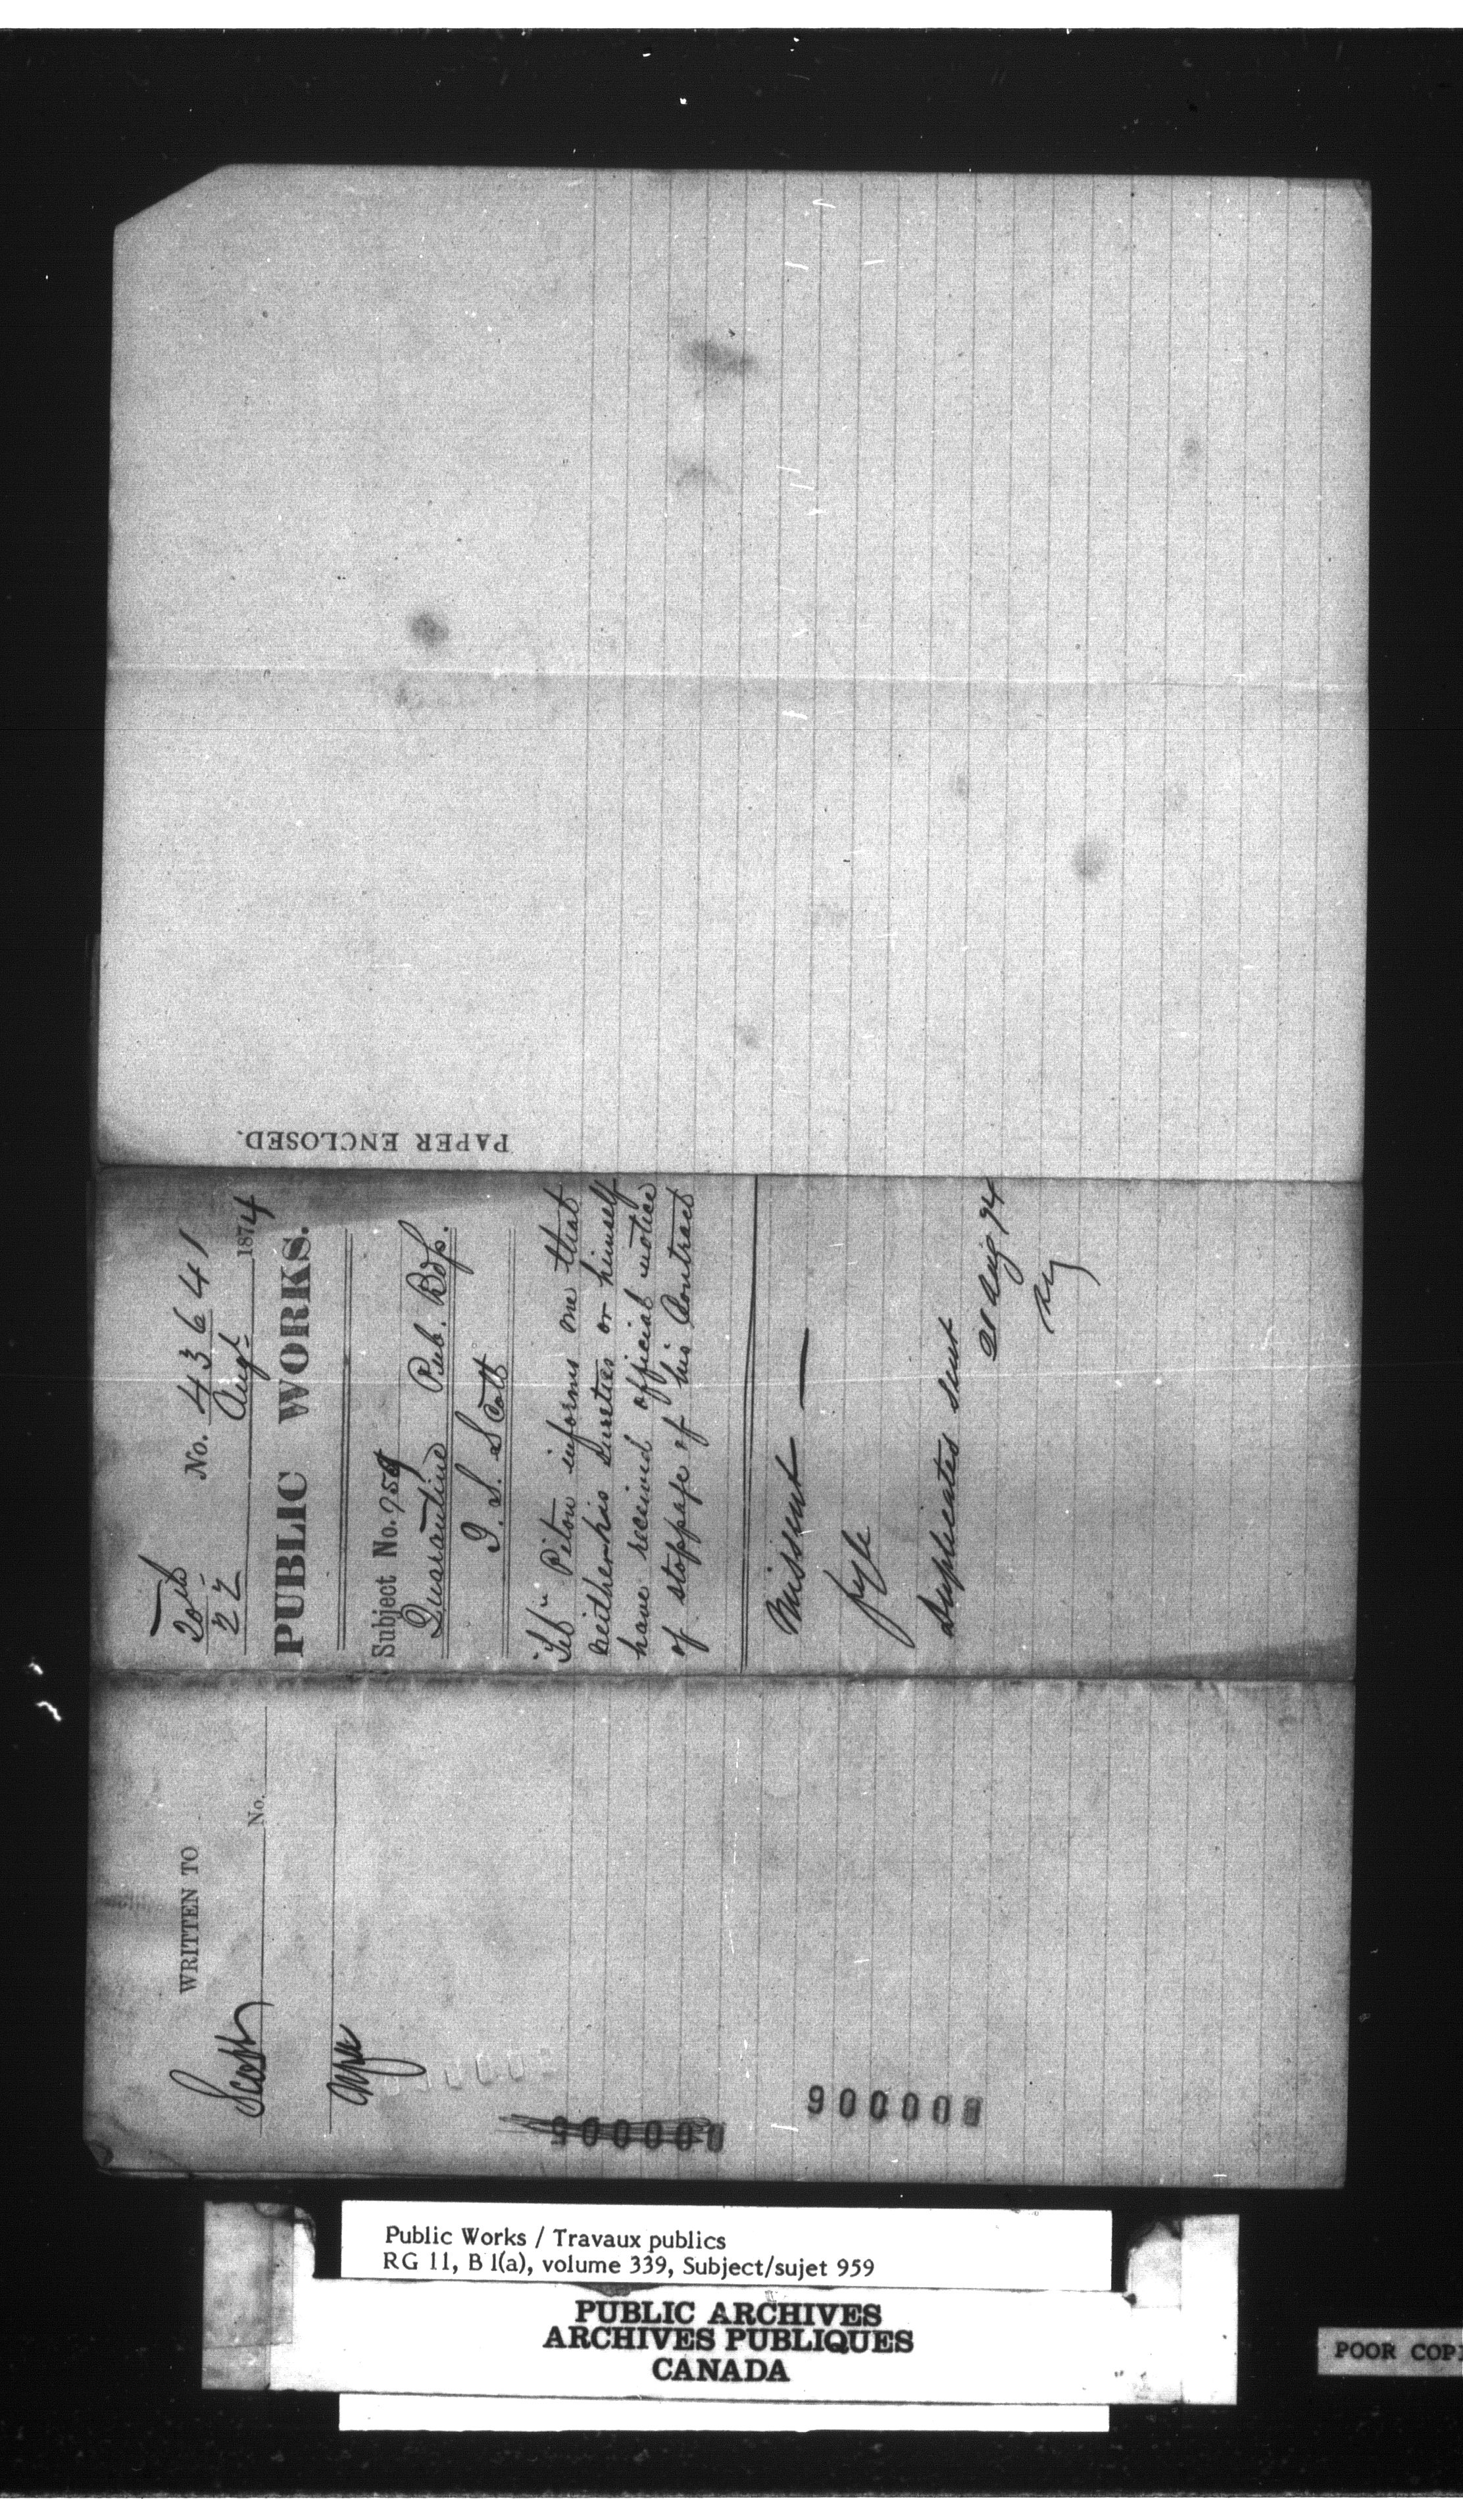 PAPER ENCLOSED.
20th
22
No. 43641
Augt 1874
PUBLIC WORKS.
Subject No. 959
Quarantine Pub. Bdgs.
T. S. Scott
Piton informs me that
neither his sureties or himself
have received official notice
of stoppage of his Contract
Missent —
fyle
Duplicates sent
21 Aug 74
WRITTEN TO
Scott
No.
900000
Public Works / Travaux publics
RG 11, B 1(a), volume 339, Subject/sujet 959
PUBLIC ARCHIVES
ARCHIVES PUBLIQUES
CANADA
POOR COPI